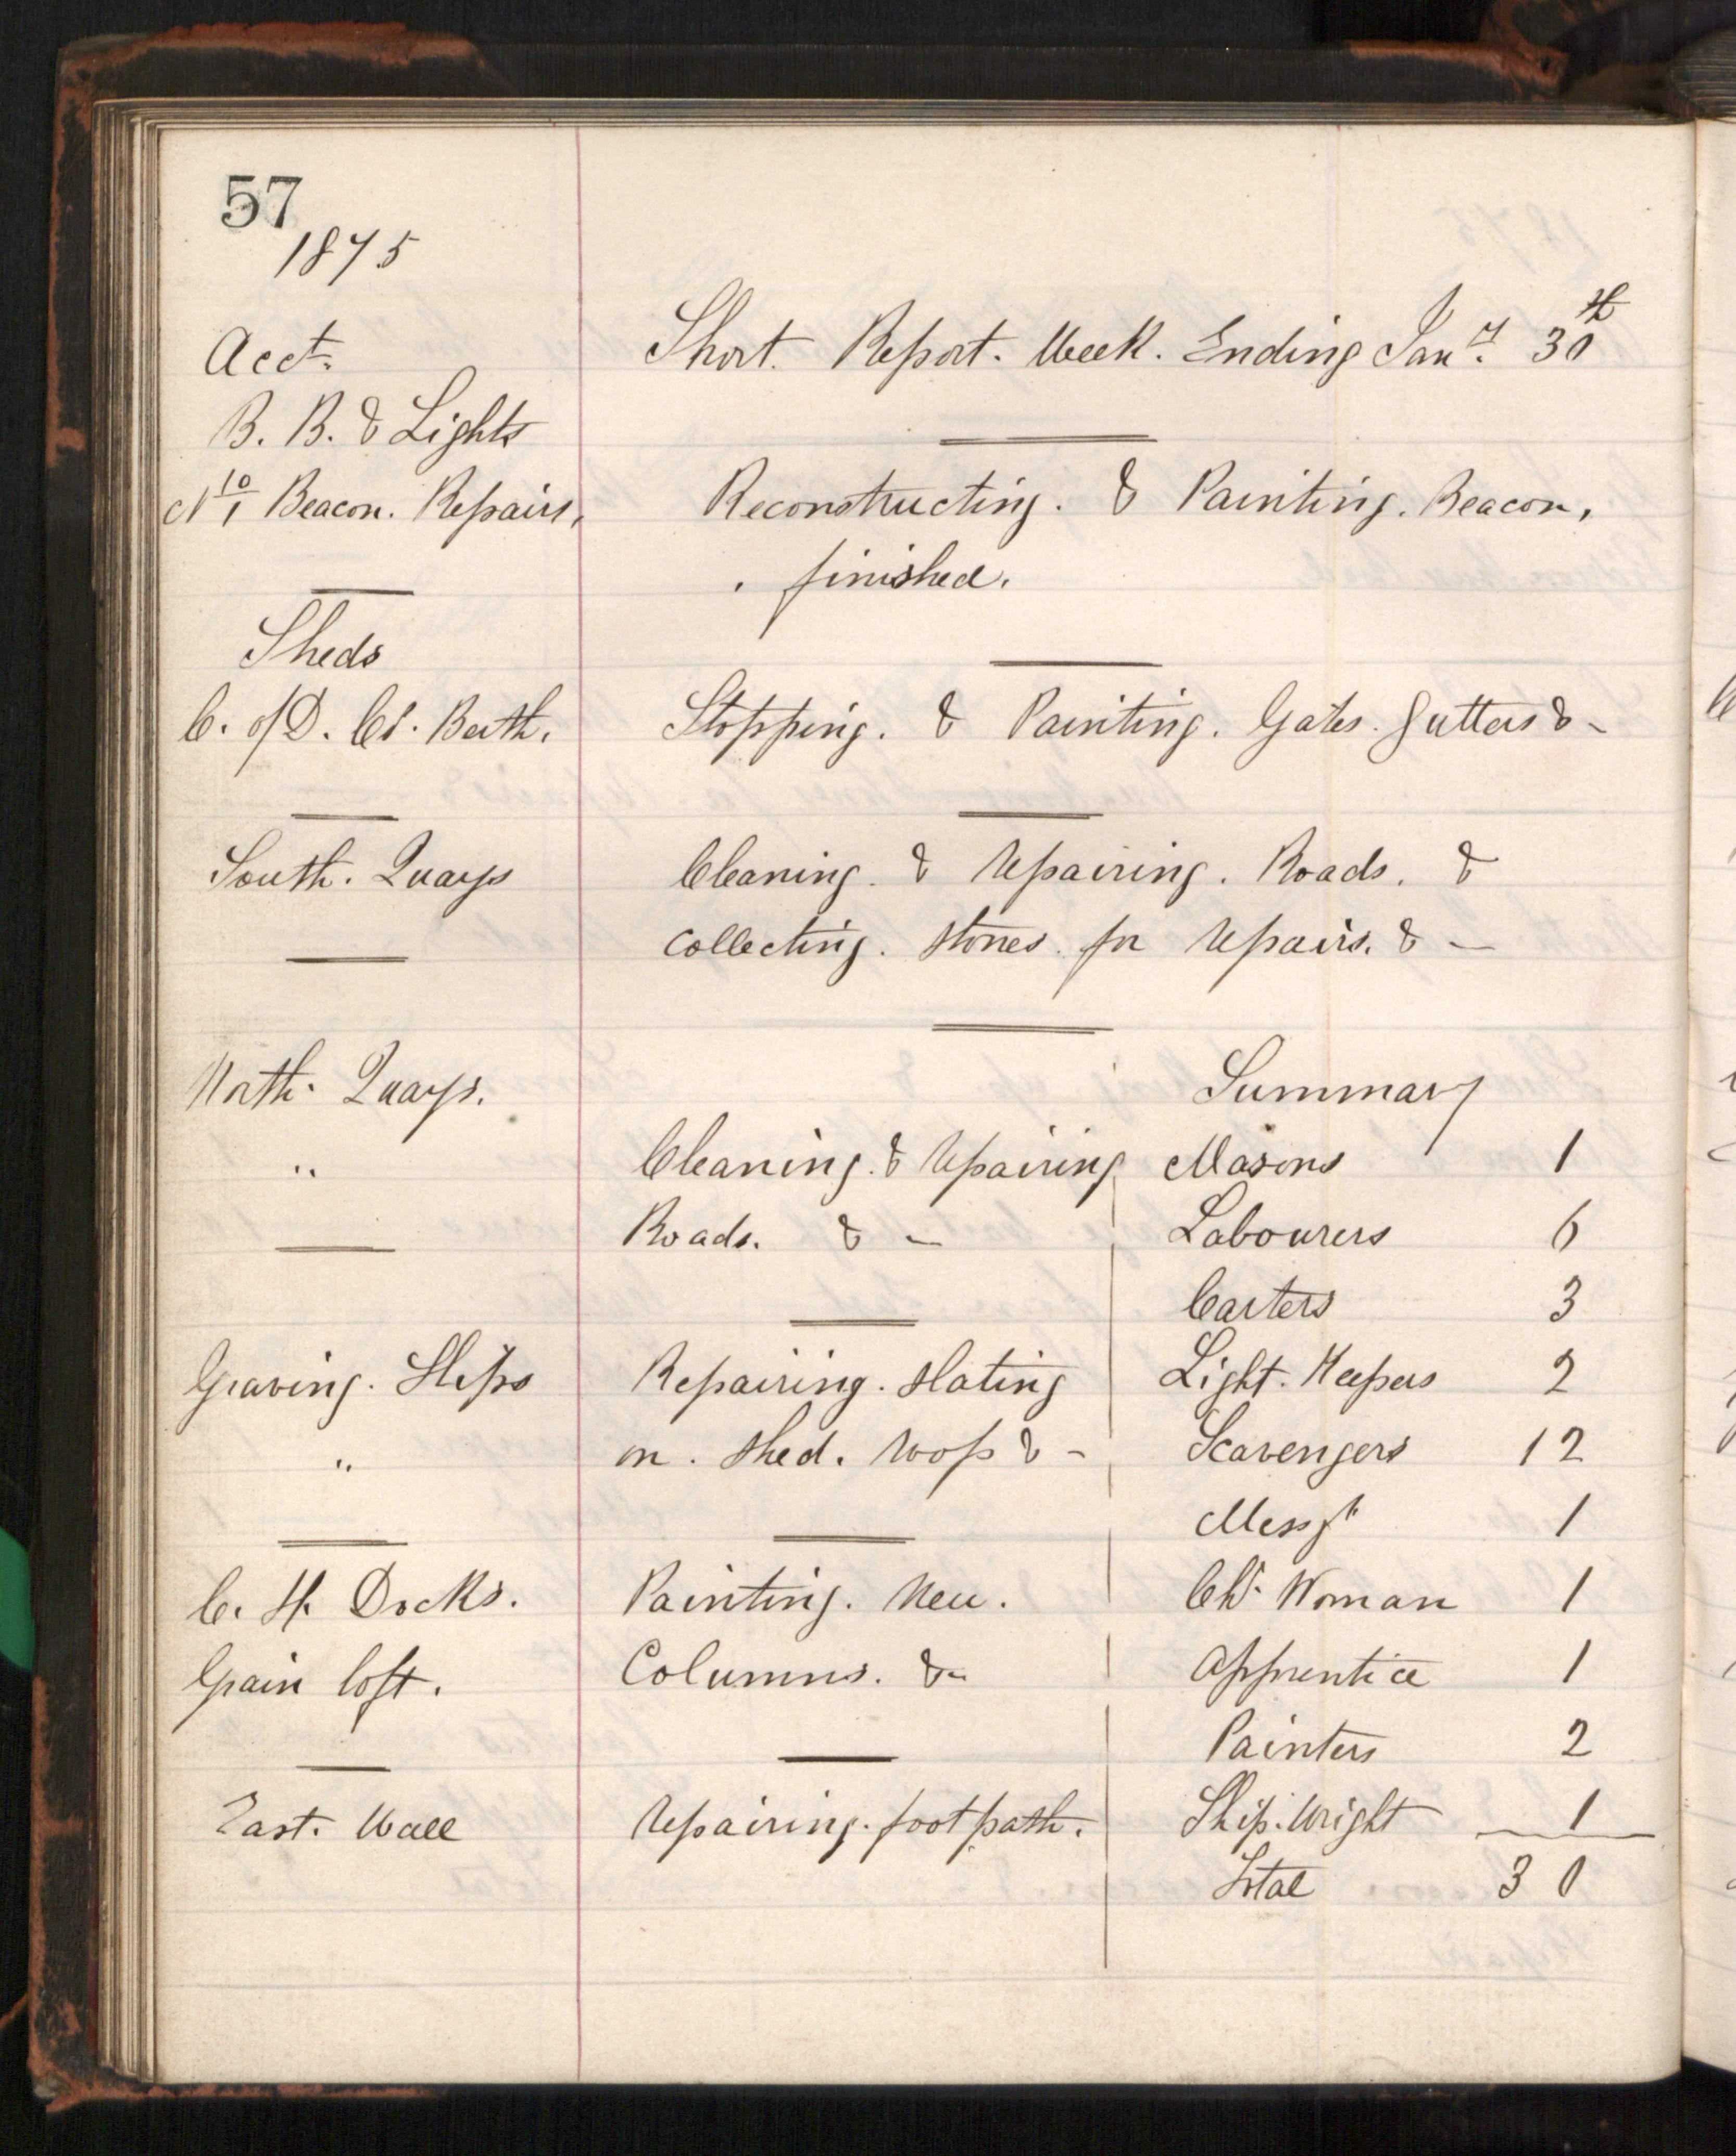 57
1875
Acct. Short. Report. Week. Ending Jany. 30th
B. B. & Lights
No. 1 Beacon. Repairs, Reconstructing. & Painting. Beacon,
finished.
Sheds
C. of D. Ct. Berth. Stopping. & Painting. Gates. Gutters & -
South. Quays Cleaning. & repairing. Roads. &
collecting. stones. for repairs. & -
North. Quays. Summary
" Cleaning. & repairing Masons 1
Roads. & - Labourers 6
Carters 3
Graving. Slips Repairing. slating Light. Keepers 2
" on. shed. roof & - Scavengers 12
Messgr 1
C. H. Docks. Painting. New. Ch. Woman 1
Grain loft. Columns. & - Apprentice 1
Painters 2
East. Wall repairing. footpath. Ship. Wright 1
Total 30